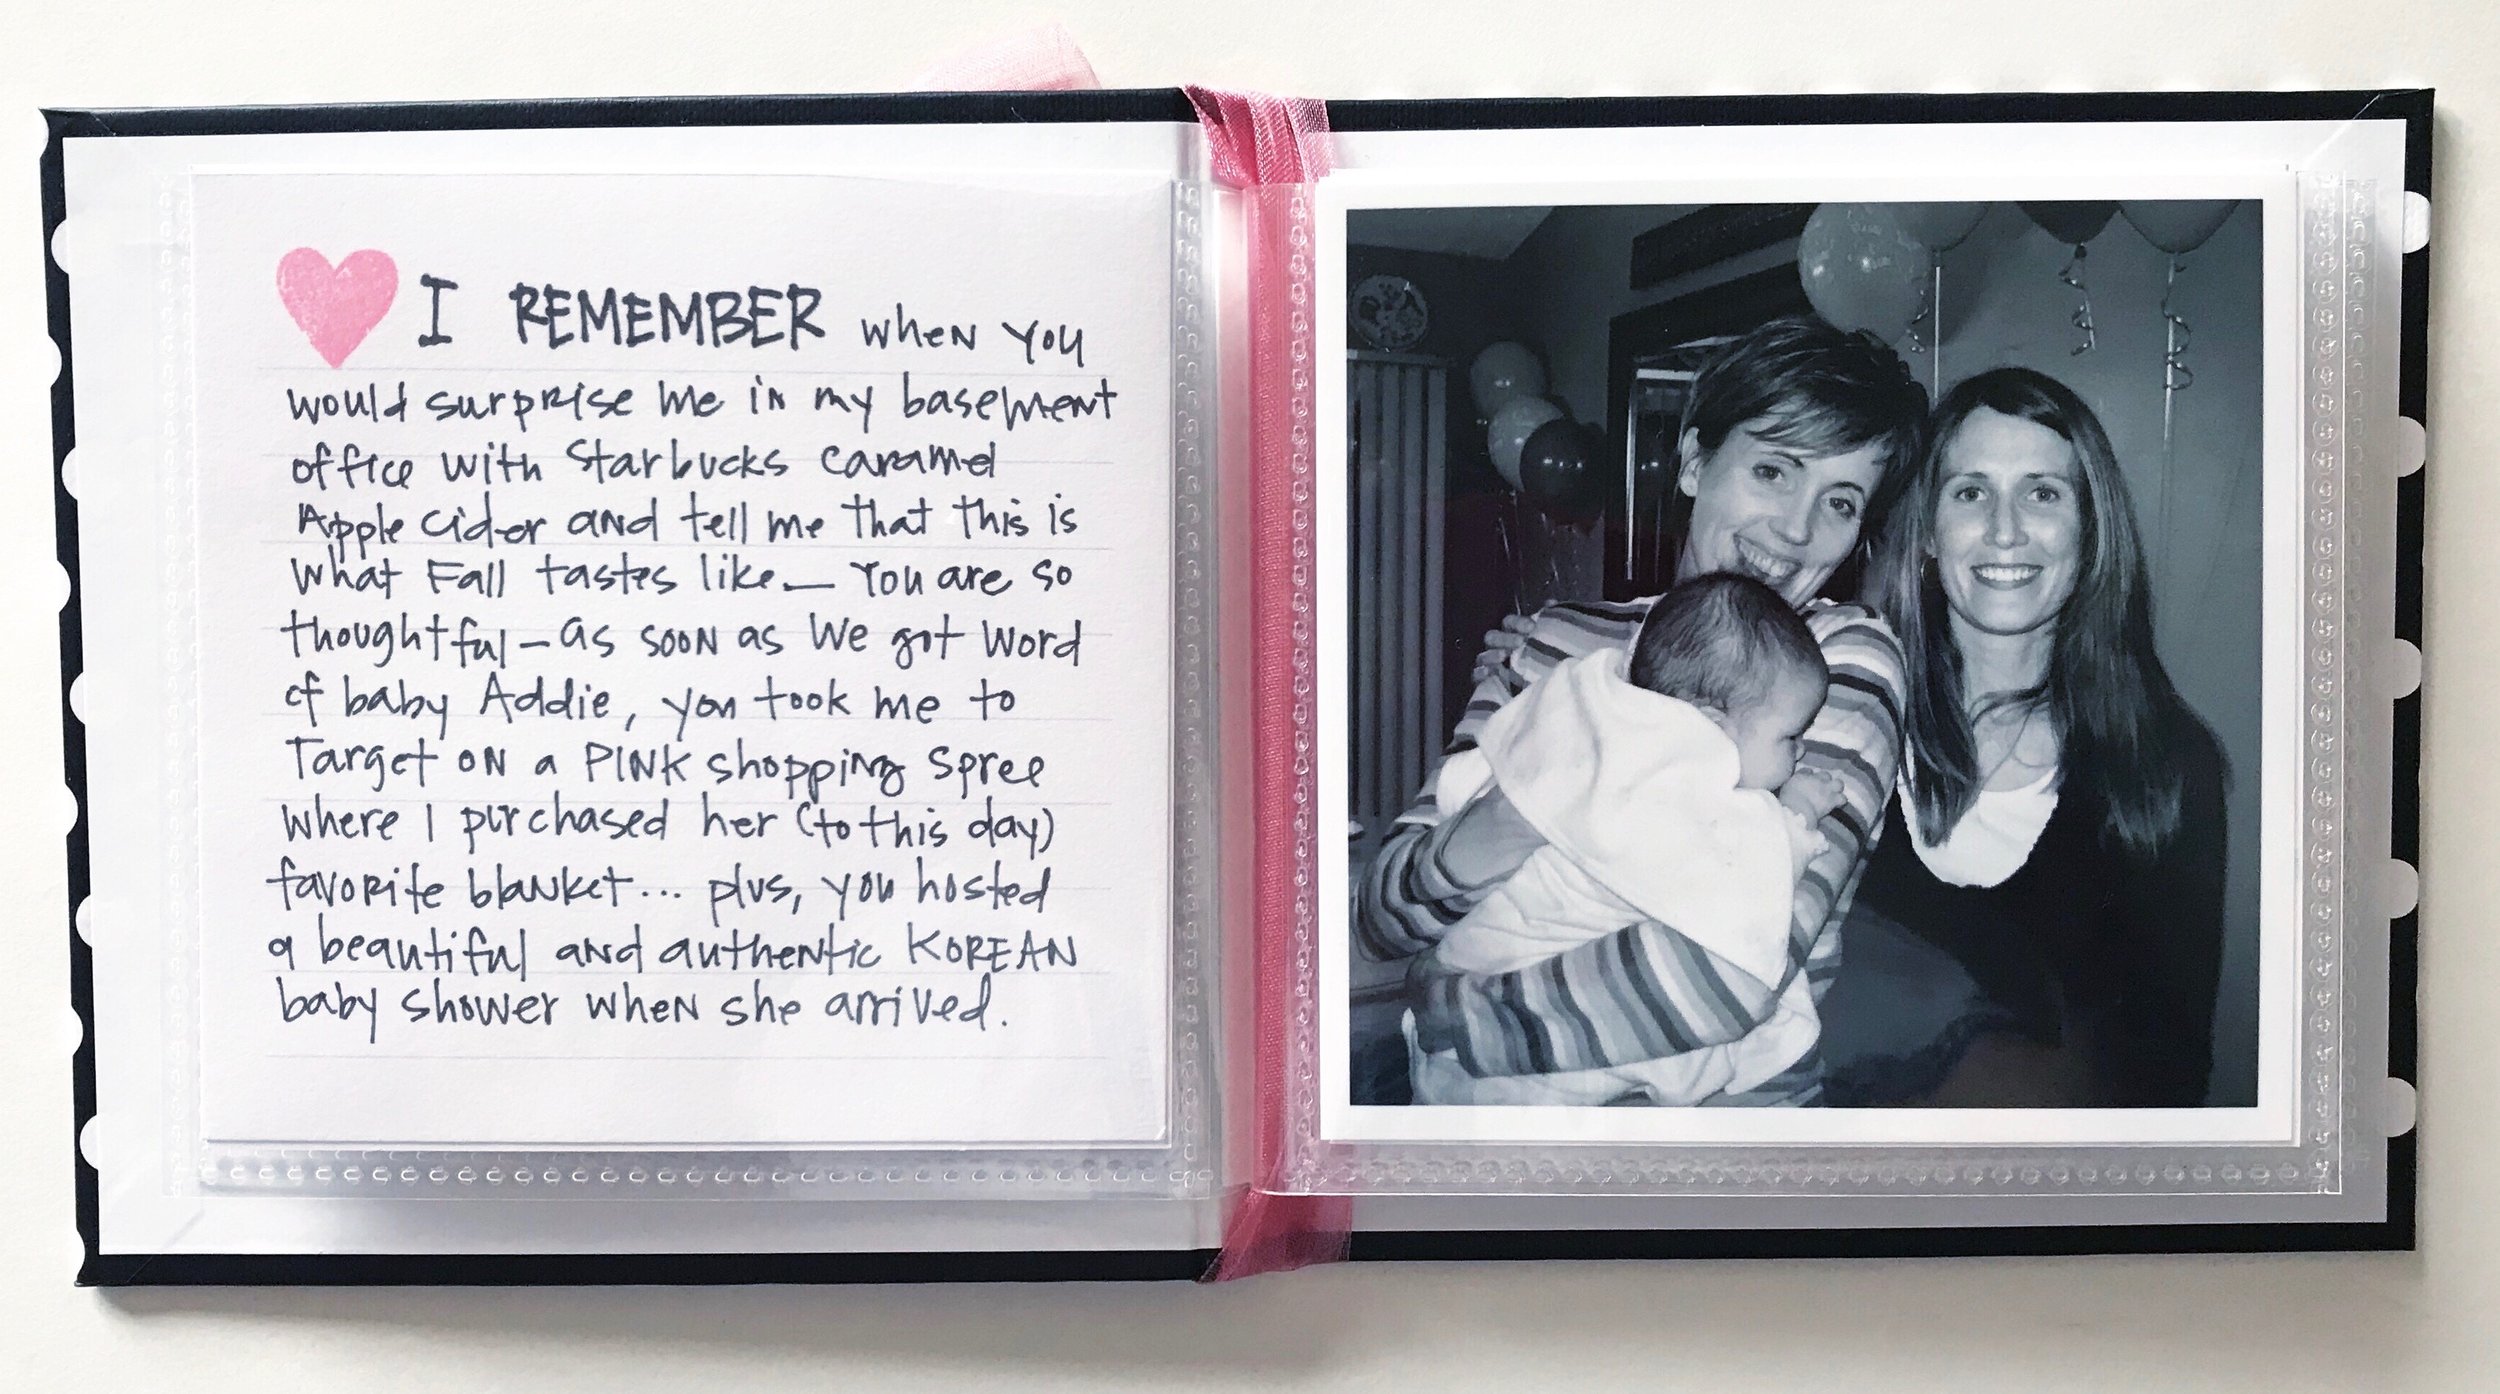 I REMEMBER when you
would surprise me in my basement
office with Starbucks caramel
Apple cider and tell me that this is
what Fall tastes like — You are so
thoughtful — as soon as we got word
of baby Addie, you took me to
Target on a PINK shopping spree
where I purchased her (to this day)
favorite blanket... plus, you hosted
a beautiful and authentic KOREAN
baby shower when she arrived.